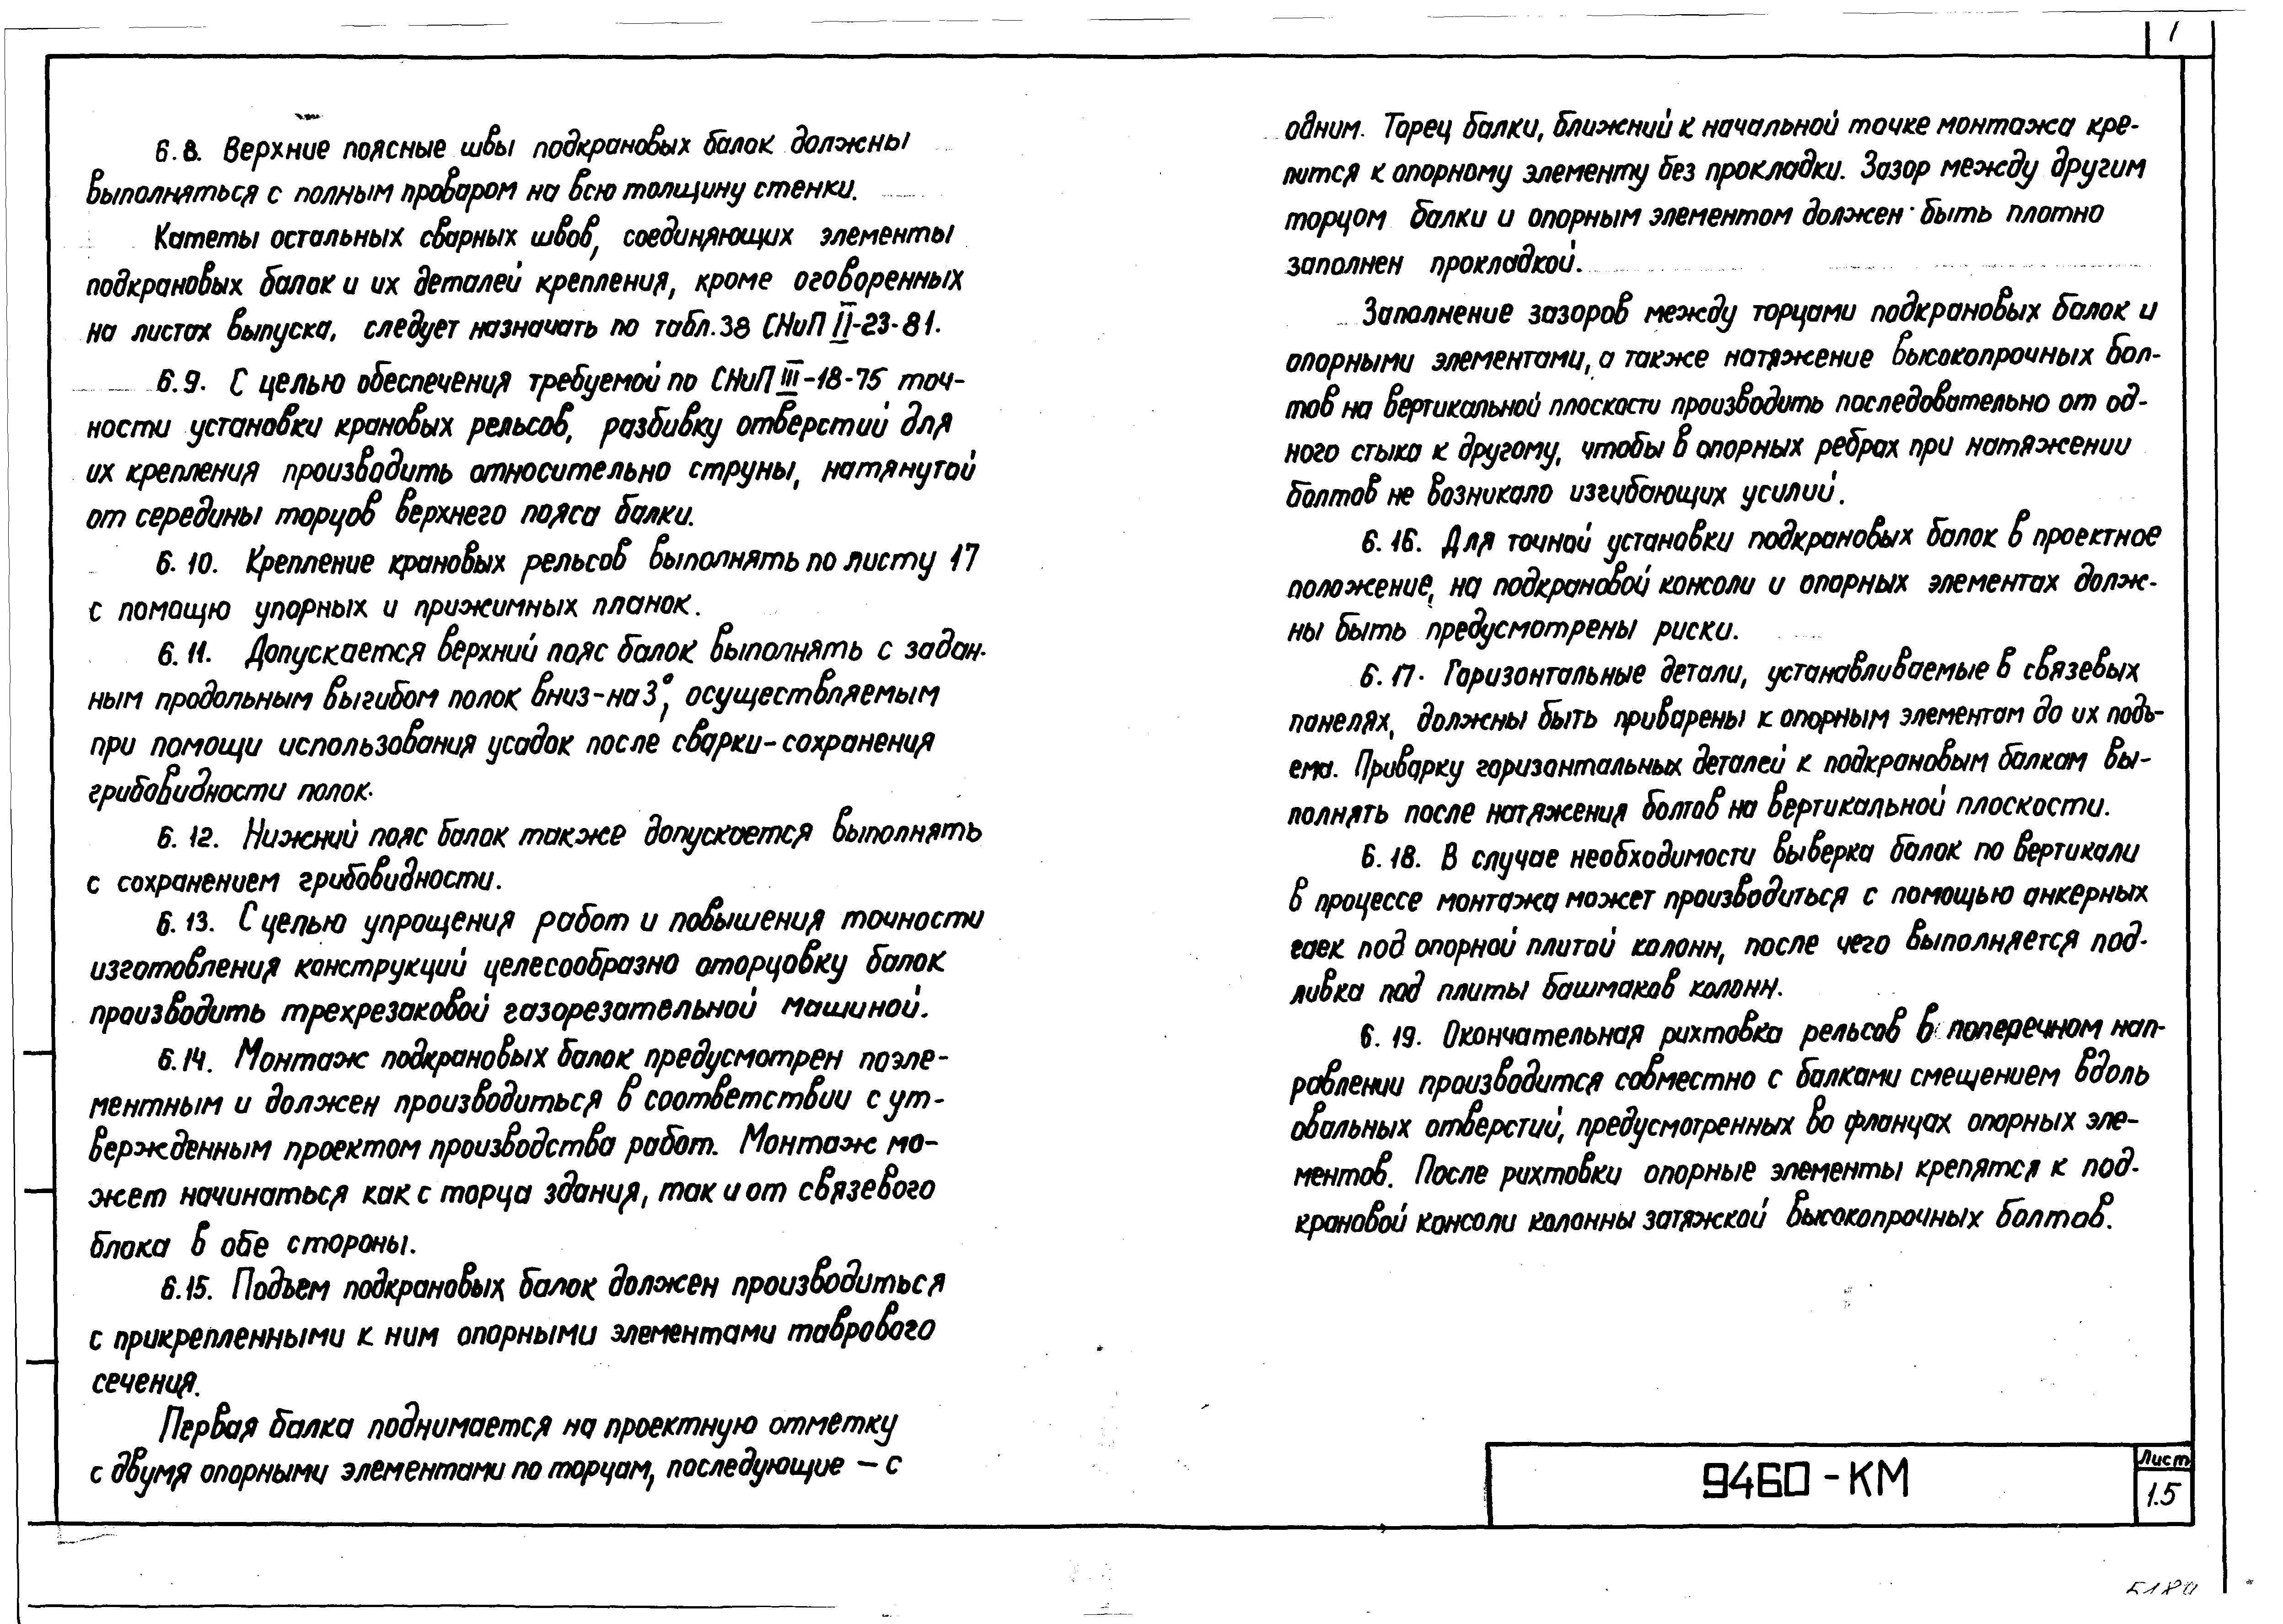 1
6.8. Верхние поясные швы подкрановых балок должны
выполняться с полным проваром на всю толщину стенки.
Катеты остальных сварных швов, соединяющих элементы
подкрановых балок и их деталей крепления, кроме оговоренных
на листах выпуска, следует назначать по табл.38 СНиП II-23-81.
6.9. С целью обеспечения требуемой по СНиП III-18-75 точ-
ности установки крановых рельсов, разбивку отверстий для
их крепления производить относительно струны, натянутой
от середины торцов верхнего пояса балки.
6.10. Крепление крановых рельсов выполнять по листу 17
с помощю упорных и прижимных планок.
6.11. Допускается верхний пояс балок выполнять с задан-
ным продольным выгибом полок вниз-на 3°, осуществляемым
при помощи использования усадок после сварки-сохранения
грибовидности полок.
6.12. Нижний пояс балок также допускается выполнять
с сохранением грибовидности.
6.13. С целью упрощения работ и повышения точности
изготовления конструкций целесообразно оторцовку балок
производить трехрезаковой газорезательной машиной.
6.14. Монтаж подкрановых балок предусмотрен поэле-
ментным и должен производиться в соответствии с ут-
вержденным проектом производства работ. Монтаж мо-
жет начинаться как с торца здания, так и от связевого
блока в обе стороны.
6.15. Подъем подкрановых балок должен производиться
с прикрепленными к ним опорными элементами таврового
сечения.
Первая балка поднимается на проектную отметку
с двумя опорными элементами по торцам, последующие – с
одним. Торец балки, ближний к начальной точке монтажа кре-
пится к опорному элементу без прокладки. Зазор между другим
торцом балки и опорным элементом должен быть плотно
заполнен прокладкой.
Заполнение зазоров между торцами подкрановых балок и
опорными элементами, а также натяжение высокопрочных бол-
тов на вертикальной плоскости производить последовательно от од-
ного стыка к другому, чтобы в опорных ребрах при натяжении
болтов не возникало изгибающих усилий.
6.16. Для точной установки подкрановых балок в проектное
положение, на подкрановой консоли и опорных элементах долж-
ны быть предусмотрены риски.
6.17. Горизонтальные детали, устанавливаемые в связевых
панелях, должны быть приварены к опорным элементам до их подъ-
ема. Приварку горизонтальных деталей к подкрановым балкам вы-
полнять после натяжения болтов на вертикальной плоскости.
6.18. В случае необходимости выверка балок по вертикали
в процессе монтажа может производиться с помощью анкерных
гаек под опорной плитой колонн, после чего выполняется под-
ливка под плиты башмаков колонн.
6.19. Окончательная рихтовка рельсов в поперечном нап-
равлении производится совместно с балками смещением вдоль
овальных отверстий, предусмотренных во фланцах опорных эле-
ментов. После рихтовки опорные элементы крепятся к под-
крановой консоли колонны затяжкой высокопрочных болтов.
9460-КМ
Лист
1.5